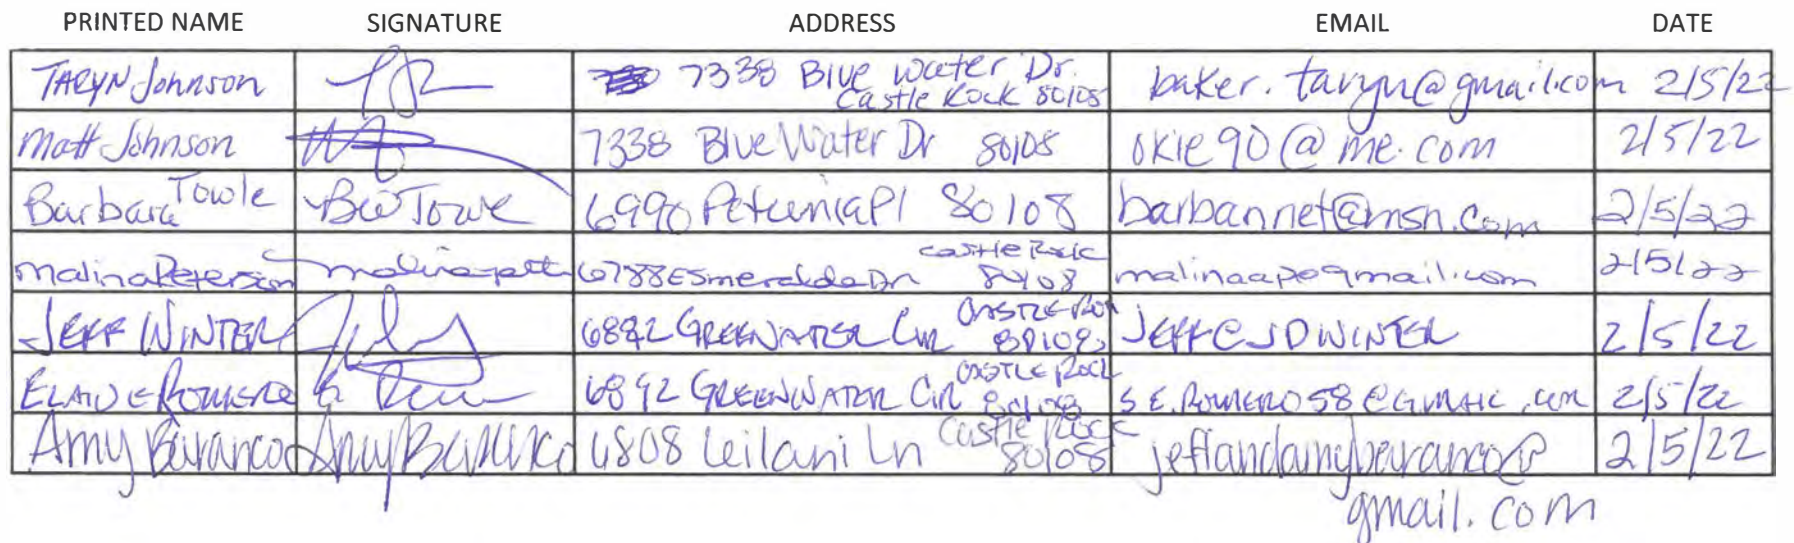 PRINTED NAME SIGNATURE ADDRESS EMAIL DATE
TARYN Johnson 7338 Blue Water Dr. Castle Rock 80108 baker.taryn@gmail.com 2/5/22
Matt Johnson 7338 Blue Water Dr 80108 okie90@me.com 2/5/22
Barbara Towle 6990 Petunia Pl 80108 barbannet@msn.com 2/5/22
malina Peterson 6788 Esmeralda Dr Castle Rock 80108 malinaape@gmail.com 2/5/22
JEFF WINTER 6882 GREENWATER CIR CASTLE ROCK 80108 JEFF@JDWINTER 2/5/22
ELAINE ROMERO 6892 GREENWATER CIR CASTLE ROCK 80108 S E.ROMERO58@GMAIL.COM 2/5/22
Amy Baranco Amy Baranco 6808 Leilani Ln Castle Rock 80108 jeffandamybaranco@ 2/5/22
gmail.com